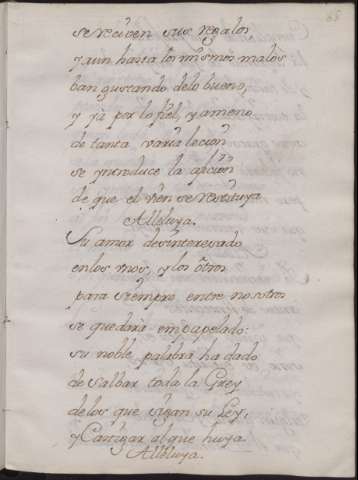 65
se reciven sus regalos
y aun hasta los mismos malos
ban gustando delo bueno,
y ya por lo fiel, y ameno
de tanta varia lecion
se yntroduce la aficion
de que el vien se restituya
Alleluya.
Su amor desinteresado
enlos unos, y los otros
para siempre entre nosotros
se quedara empapelado:
su noble palabra ha dado
de salbar toda la Grey
delos que sigan su Ley,
y Castigar al que huya
Alleluya.